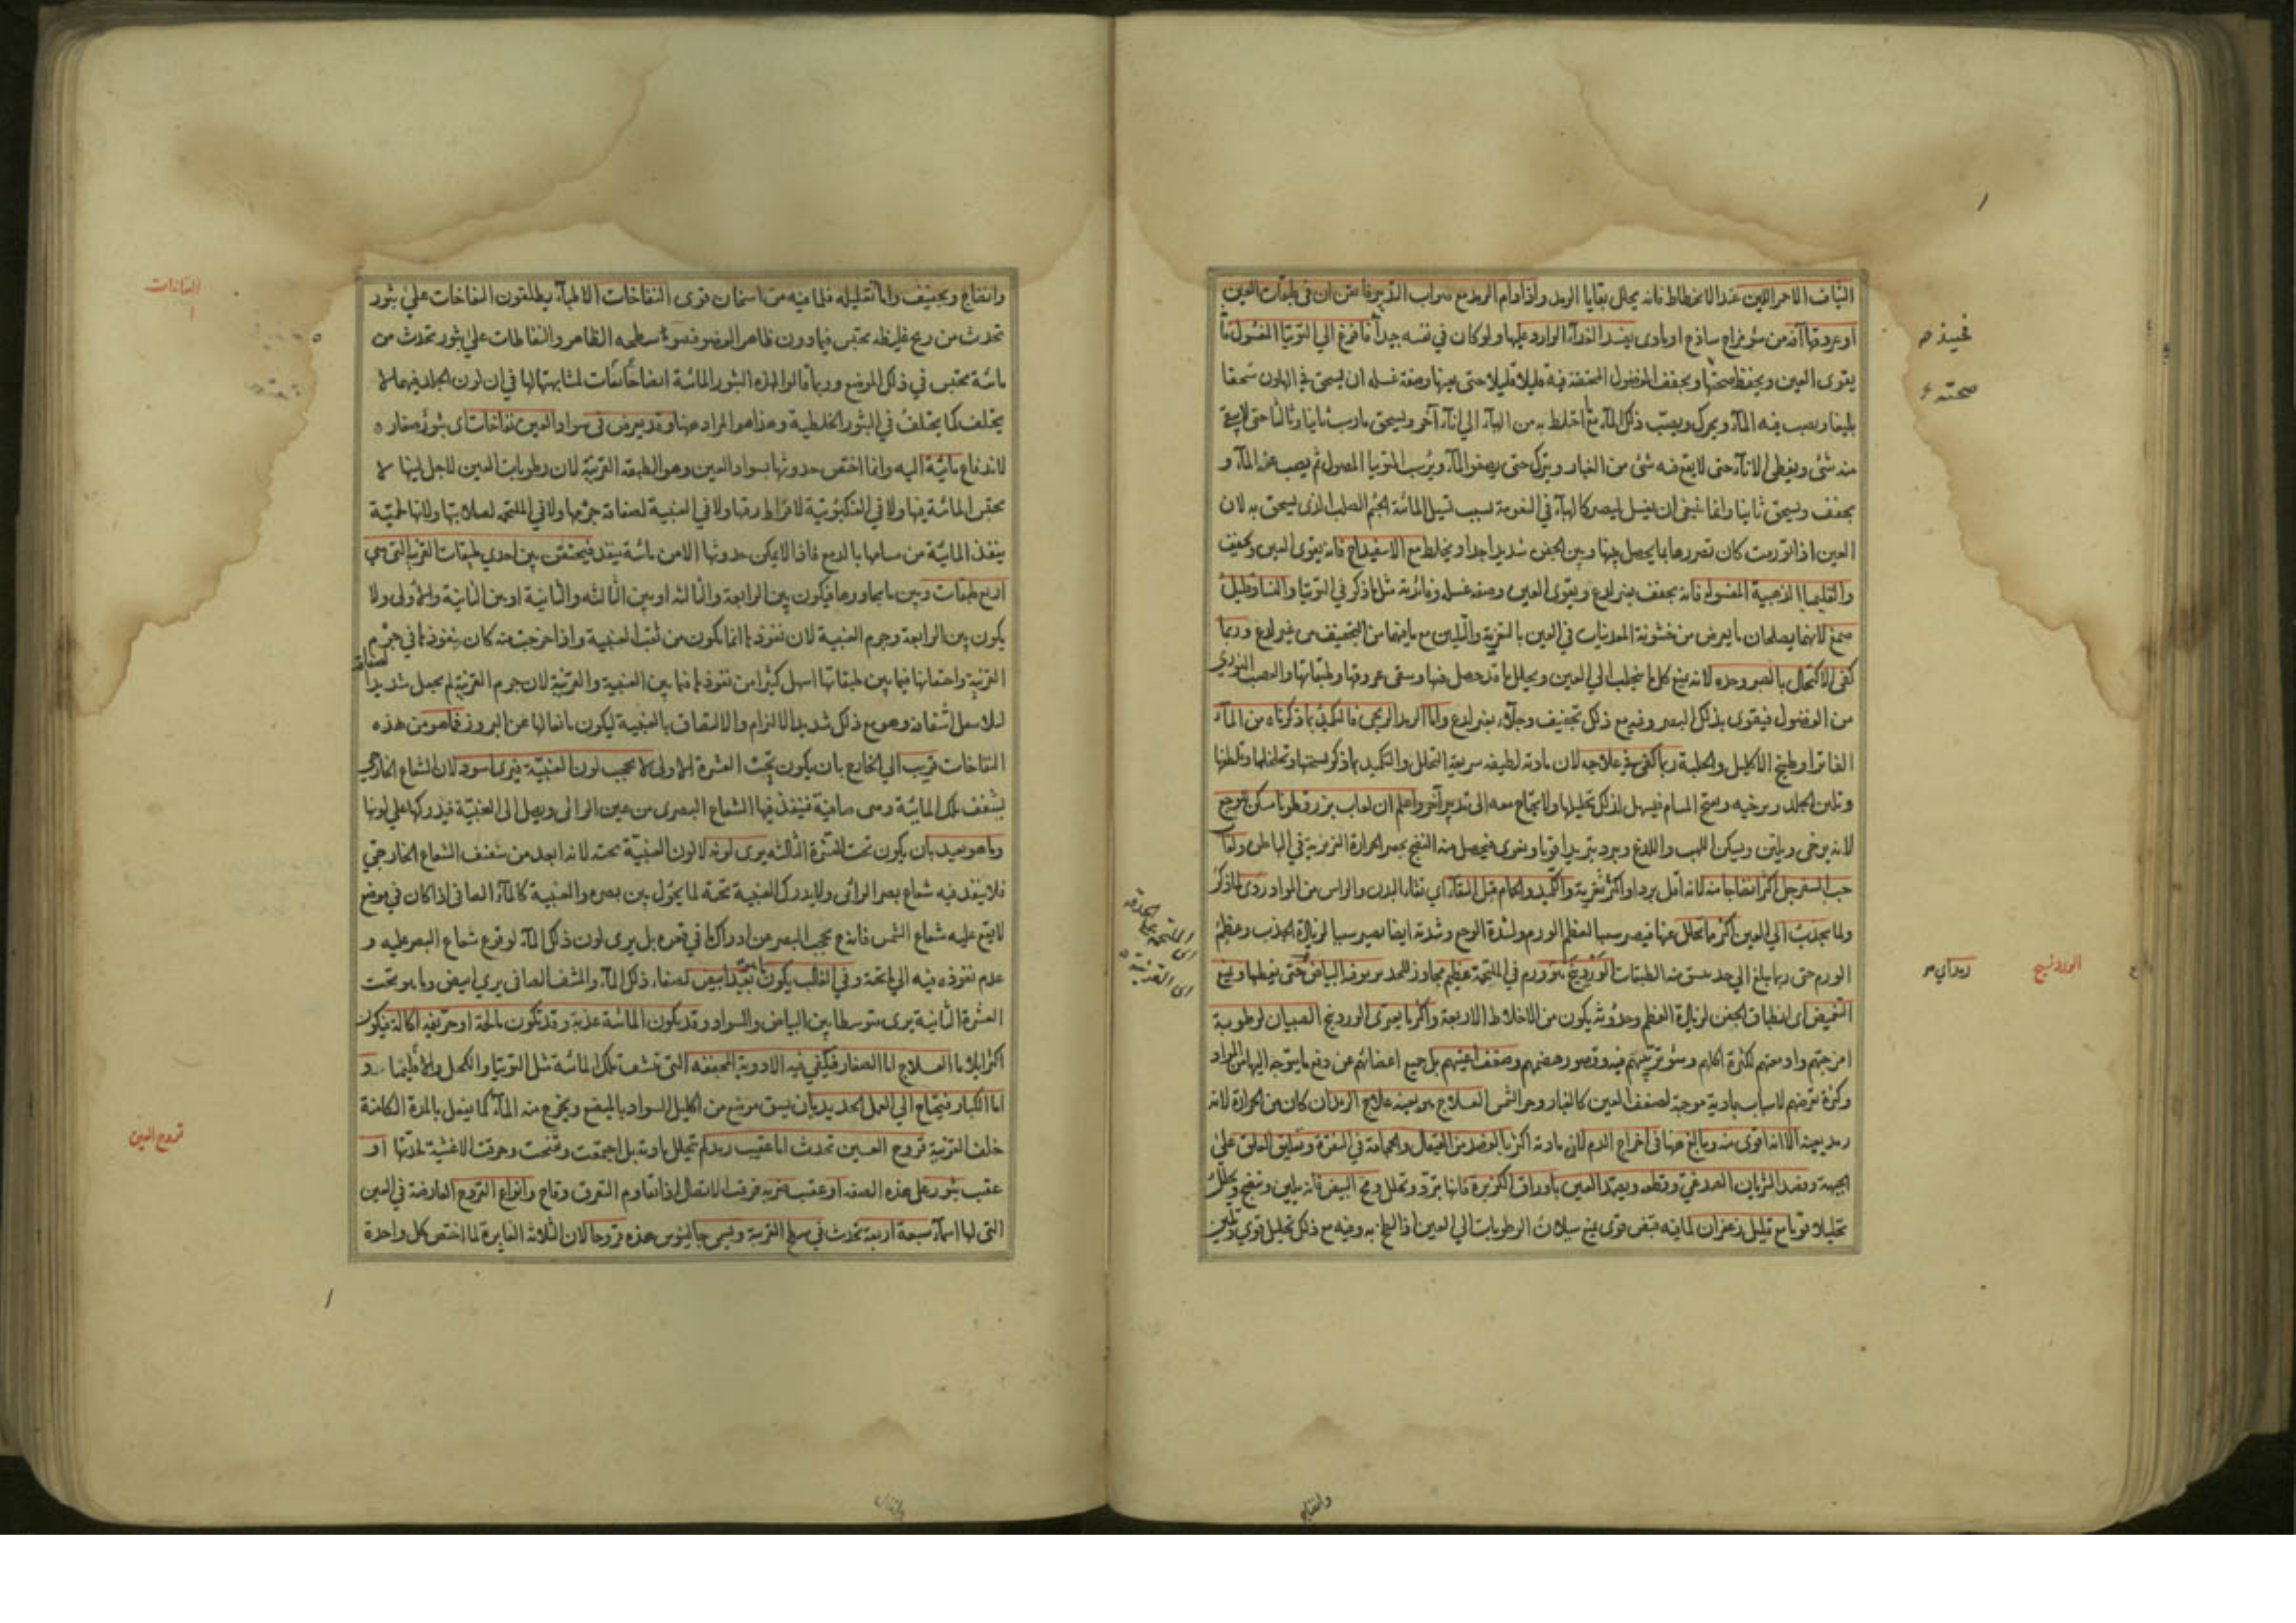 الشياف الاحمر اللين عند الانحطاط فانه يحلل بقايا الرمد واذا دام الرمد مع صواب التدبير فاعلم ان في طبقات العين
او عروقها آفة من سوء مزاج ساذج او مادى يفسد الغذاء الوارد عليها ولو كان في نفسه جيدا فافزع الي التوتيا المغسول فانه
يقوى العين ويحفظ صحتها ويجفف الفضول المحتقنة فيه قليلا قليلا حتى يفنيها وصفة غسله ان يسحق في الهاون سحقا
بليغا ويصب فيه الماء ويحرك ويصب ذلك الماء مع ما اختلط به من الهباء الي اناء آخر ويسحق مارسب ثانيا وثالثا حتى لا يبقى
منه شئ ويغطى الاناء حتى لا يقع فيه شئ من الغبار ويترك حتى يصفو الماء ويرسب التوتيا المصول ثم يصب عنه الماء و
يجفف ويسحق ثانيا وانما ينبغى ان يغسل ليصير كالهباء في النعومة بسبب تسييل المائية الجسم الصلب الذى يسحق به لان
العين اذا تورمت كان تضررها بما يحصل بينها وبين الجفن شديدا جدا ويخلط مع الاسفيداج فانه يقوى العين ويجفف
والقليميا الذهبية المغسولة فانه يجفف بغير لدغ ويقوى العين وصفة غسله وفائدته مثل ما ذكر في التوتيا والنشا وقليل
صمغ لانهما يصلحان ما يعرض من خشونة المعدنيات في العين بالتغرية والتليين مع ما فيهما من التجفيف من غير لدغ وربما
كفى الاكتحال بالصبر وحده لانه يمنع كل ما ينجلب الي العين ويحلل ما قد حصل فيها وينقى عروقها وطبقاتها والعصب النورى
من الفضول فيقوى بذلك البصر وفيه مع ذلك تجفيف وجلاء بغير لدغ واما الرمد الريحى فالتكميد بما ذكرناه من الماء
الفاتر او طبيخ الاكليل والحلبة ربما كفى في علاجه لان مادته لطيفة سريعة التحلل والتكميد بما ذكر يسخنها ويخلخلها ويلطفها
ويلين الجلد ويرخيه ويفتح المسام فيسهل لذلك تحليلها ولا يحتاج معه الى تدبير آخر واعلم ان لعاب بزر قطونا مسكن للوجع
لانه يرخى ويلين ويسكن اللهب واللدغ ويبرد تبريدا قويا ويغرى فيحصل منه النضج بحصر الحرارة الغريزية في الباطن ولعاب
حب السفرجل اكثر انضاجا منه لانه اقل بردا واكثر تغرية والتكميد والحمام قبل النقاء اي نقاء البدن والراس من المواد ردى لما ذكر
ولما يجذب الي العين اكثر مما تحلل عنها فيصير سببا لعظم الورم ولشدة الوجع وشدته ايضا يصير سببا لزيادة الجذب وعظم
الورم حتى ربما بلغ الي حد ينشق منه الطبقات الوردينج هو ورم في الملتحمة عظيم مجاوز للحد يربو فيه البياض حتى يغطيها ويمنع
التغميض اى انطباق الجفن لزيادة العظم وحدوثه يكون من الاخلاط الاربعة واكثر ما يعترى الوردينج الصبيان لرطوبة
امزجتهم وادمغتهم لكثرة اكلهم وسوء ترتيبهم فيه وقصور هضمهم وضعف اعينهم بل جميع اعضائهم عن دفع ما يتوجه اليها من المواد
وكثرة تعرضهم لاسباب بادية موجبة لضعف العين كالغبار وحر الشمس العلاج هو بعينه علاج الرمد ان كان من الحرارة لانه
رمد بعينه الا انه اقوى منه ويبالغ ههنا في اخراج الدم لان مادته اكثر بالفصد من القيفال والحجامة في النقرة وتعليق العلق على
الجبهة وفصد الشريان الصدغي وقطعه ويضمد العين باوراق الكزبرة فانها تبرد وتحلل ومح البيض فانه يلين وينضج ويحلل
تحليلا قويا مع قليل زعفران لما فيه قبض قوى يمنع سيلان الرطوبات الي العين اذا لطخ به وفيه مع ذلك تحليل قوي وتليين
صحته
الوردينج
اى الملتحمة على الحدقة
اى القرنية
وانضاج
وانضاج وتجفيف واما تقليله فلما فيه من اسخان قوى النفاخات الاطباء يطلقون النفاخات على بثور
تحدث من ريح غليظة تحتبس فيما دون ظاهر العضو فينوء سطحه الظاهر والنفاطات على بثور تحدث من
مائية تحتبس في ذلك الموضع وربما قالوا لهذه البثور المائية ايضا نفاخات لمشابهتها لها في ان لون الجلد فيهما لا
يختلف كما يختلف في البثور الخلطية وهذا هو المراد ههنا وقد يعرض في سواد العين نفاخات اى بثور صغار
لاندفاع مائية اليه وانما اختص حدوثها بسواد العين وهو الطبقة القرنية لان رطوبات العين لاجل لينها لا
تحتبس المائية فيها ولا في العنكبوتية لافراط رقتها ولا في العنبية لصفاقة جرمها ولا في الملتحمة لصلابتها ولانها لحمية
ينفذ المائية من مسامها بالدمع فاذا لا يمكن حدوثها الا من مائية ينفذ فيحتقن بين احدي طبقات القرنية التى هى
اربع طبقات وبين ما يجاورها فيكون بين الرابعة والثالثة او بين الثالثة والثانية او بين الثانية والاولى ولا
يكون بين الرابعة وجرم العنبية لان نفوذها انما يكون من ثقب العنبية واذا خرجت منه كان نفوذها في جرم
القرنية واحتقانها فيما بين طبقاتها اسهل كثيرا من نفوذها فيما بين العنبية والقرنية لان جرم القرنية لم يجعل شديد الصفاقة
لئلا يبطل اشفافه وهو مع ذلك شديد الالتزام والالتصاق بالعنبية ليكون مانعا لها عن البروز فما هو من هذه
النفاخات قريب الي الخارج بان يكون تحت القشرة الاولى لا يحجب لون العنبية فيرى اسود لان الشعاع الخارجي
يشفف تلك المائية وهى صافية فينفذ فيها الشعاع البصرى من عين الرائى ويصل الى العنبية فيدركها على لونها
وما هو بعيد بان يكون تحت القشرة الثالثة يرى لونه لا لون العنبية تحته لانه ابعد من تشفف الشعاع الخارجي
فلا ينفذ فيه شعاع بصر الرائى ولا يدرك العنبية تحته لما يحول بين بصره والعنبية كالماء الصافى اذا كان في موضع
لا يقع عليه شعاع الشمس فانه يحجب البصر عن ادراك ما في قعره بل يرى لون ذلك الماء لوقوع شعاع البصر عليه و
عدم نفوذه فيه الي ما تحته وفي الاغلب يكون ابيض لصفاء ذلك الماء والمشف الصافى يري ابيض وما هو تحت
القشرة الثانية يرى متوسطا بين البياض والسواد وقد يكون المائية عذبة وقد تكون مالحة او حريفة اكالة فيكون
اكثر ايلاما العلاج اما الصغار فيكفي فيه الادوية المجففة التى تنشف تلك المائية مثل التوتيا والكحل والاقليميا و
اما الكبار فيحتاج الي العمل الحديد بان يشق موضع من اكليل السواد بالمبضع ويخرج منه الماء كما يفعل بالمدة الكامنة
خلف القرنية قروح العين تحدث اما عقيب رمد لم يتحلل مادته بل اجتمعت وتقيحت وخرقت الاغشية لحدتها او
عقب بثور على هذه الصفة او عقب ضربة فرقت الاتصال اذا تقادم التفرق وقاح وانواع القروح العارضة في العين
التى لها اسماء سبعة اربعة تحدث في سطح القرنية ويسمى جالينوس هذه قروحا لان الثلاثة الغايرة لما اختص كل واحدة
النفاخات
قروح العين